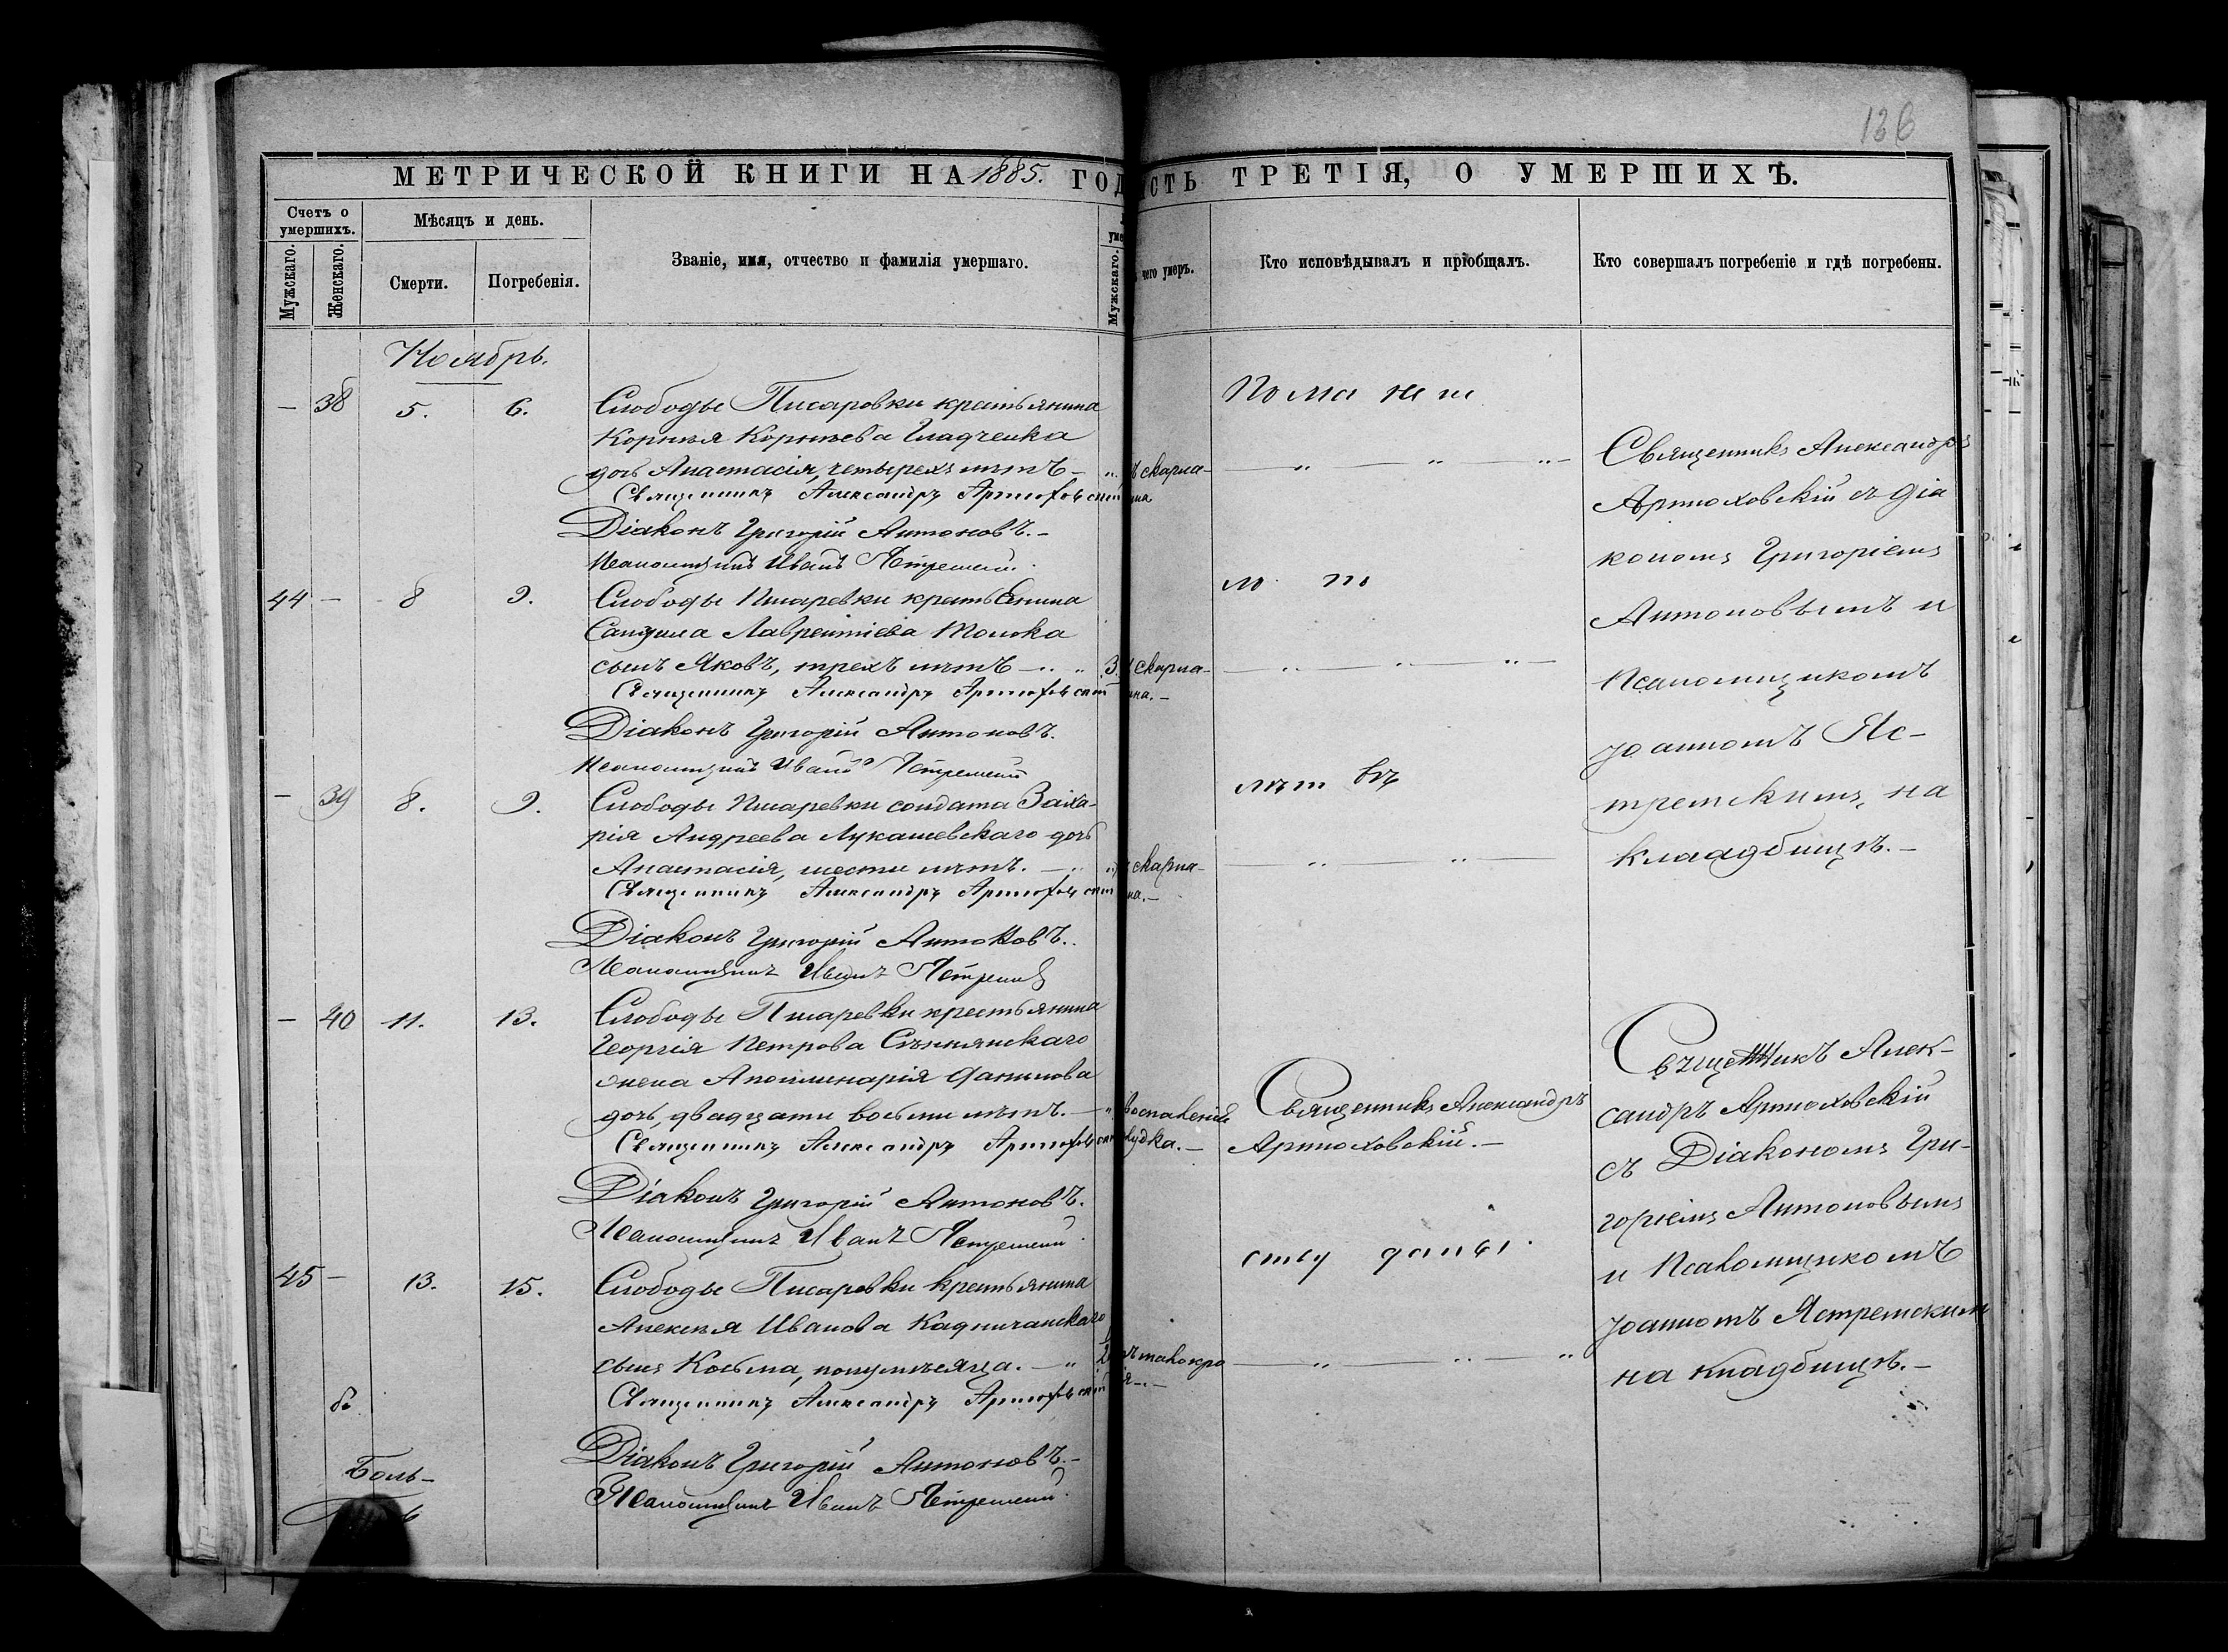 136
МЕТРИЧЕСКОЙ КНИГИ НА 1885. ГОД
Счетъ о умершихъ.
Мѣсяцъ и день.
Званіе, имя, отчество и фамилія умершаго.
Мужскаго.
Женскаго.
Смерти.
Погребенія.
Мужскаго.
Ноябрь.
— 38 5. 6. Слободы Писаровки крестьянина
Корнѣя Корнѣева Гладченка
дочь Анастасія, четырехъ лѣтъ —
Священникъ Александръ Артюховскій
Діаконъ Григорій Антоновъ. —
Псаломщикъ Иванъ Ястремскій.
44 — 8 9. Слободы Писаревки крестьянина
Лаврентіева
сынъ Яковъ, трехъ лѣтъ — 3.
Священникъ Александръ Артюховскій
Діаконъ Григорій Антоновъ.
Псаломщикъ Иванъ Ястремскій
— 39 8. 9. Слободы Писаревки солдата Заха-
рія Андреева Лукашевскаго дочь
Анастасія, шести лѣтъ. —
Священникъ Александръ Артюховскій
Діаконъ Григорій Антоновъ.
Псаломщикъ Иванъ Ястремскій
— 40 11. 13. Слободы Писаревки крестьянина
Георгія Петрова
жена Аполлинарія Данилова
дочь, двадцати восьми лѣтъ. —
Священникъ Александръ Артюховскій
Діаконъ Григорій Антоновъ.
Псаломщикъ Иванъ Ястремскій
45 — 13. 15. Слободы Писаровки крестьянина
Алексѣя Иванова
сынъ Косьма, полумѣсяца. —
Священникъ Александръ Артюховскій
Боль-
Діаконъ Григорій Антоновъ. —
Псаломщикъ Иванъ Ястремскій
СТЬ ТРЕТІЯ, О УМЕРШИХЪ.
чего умеръ.
Кто исповѣдывалъ и пріобщалъ.
Кто совершалъ погребеніе и гдѣ погребены.
По ма лѣ т
скарла-
Священникъ Александръ
Артюховскій съ діа
кономъ Григоріемъ
Антоновымъ и
скарла-
на. —
Псаломщикомъ
Іоанномъ Яс-
тремскимъ, на
кладбищѣ. —
скарла-
на. —
Священникъ Алек-
воспаленія Священникъ Александръ
Артюховскій. —
сандръ Артюховскій
съ Діакономъ Гри-
горіемъ Антоновымъ
и Псаломщикомъ
Іоанномъ Ястремским
на кладбищѣ. —